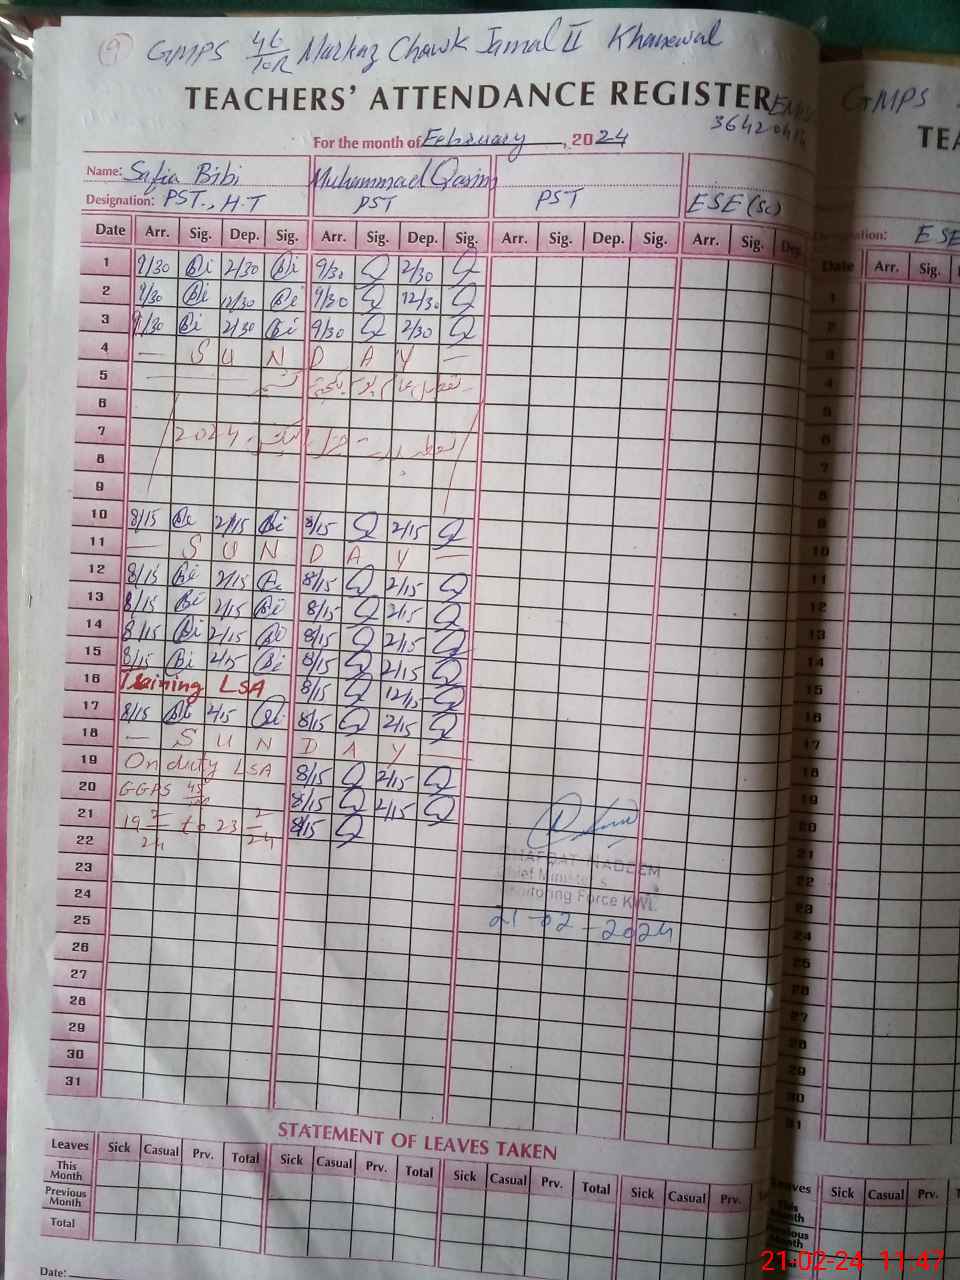 9 GMPS 46/10R Markaz Chowk Jamal II Khanewal
TEACHERS' ATTENDANCE REGISTER
For the month of February, 2024
Name: Safia Bibi Muhammad Qasim
Designation: PST., H.T PST PST ESE (Sc)
Date Arr. Sig. Dep. Sig. Arr. Sig. Dep. Sig. Arr. Sig. Dep. Sig. Arr. Sig. Dep.
1 9/30 Bi 2/30 Bi 9/30 Q 2/30 Q
2 9/30 Bi 12/30 Bi 9/30 Q 12/30 Q
3 9/30 Bi 2/30 Bi 9/30 Q 2/30 Q
4 — S U N D A Y —
5
6
7 2024
8
9
10 8/15 Bi 2/15 Bi 8/15 Q 2/15 Q
11 — S U N D A Y —
12 8/15 Bi 2/15 Bi 8/15 Q 2/15 Q
13 8/15 Bi 2/15 Bi 8/15 Q 2/15 Q
14 8/15 Bi 2/15 Bi 8/15 Q 2/15 Q
15 8/15 Bi 2/15 Bi 8/15 Q 2/15 Q
16 Training LSA 8/15 Q 12/15 Q
17 8/15 Bi 2/15 Bi 8/15 Q 2/15 Q
18 — S U N D A Y —
19 On duty LSA 8/15 Q 2/15 Q
20 GGPS 8/15 Q 2/15 Q
21 19 2/24 to 23 2/24 8/15 Q
22
23
24
25
26
27
28
29
30
31
NADEEM
Chief Minister's
Monitoring Force KWL
21-02-2024
STATEMENT OF LEAVES TAKEN
Leaves Sick Casual Prv. Total Sick Casual Prv. Total Sick Casual Prv. Total Sick Casual Prv.
This Month
Previous Month
Total
Date:
GMPS
TEA
ESE
Date Arr. Sig.
Sick Casual Prv.
21-02-24 11:47